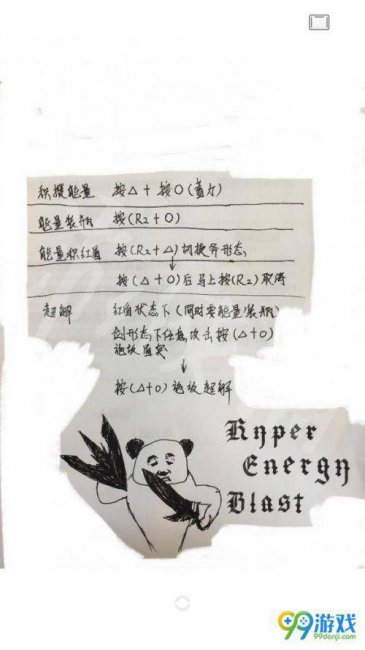 积攒能量 按△+按O(蓄力)
能量装瓶 按(R2+O)
能量积红盾 按(R2+△)切换斧形态
↓
按(△+O)后马上按(R2)取消
超解 红盾状态下(同时要能量装瓶)
剑形态下任意攻击按(△+O)
施放盾突
↓
按(△+O)施放超解
Hyper
Energy
Blast
99游戏
99danji.com